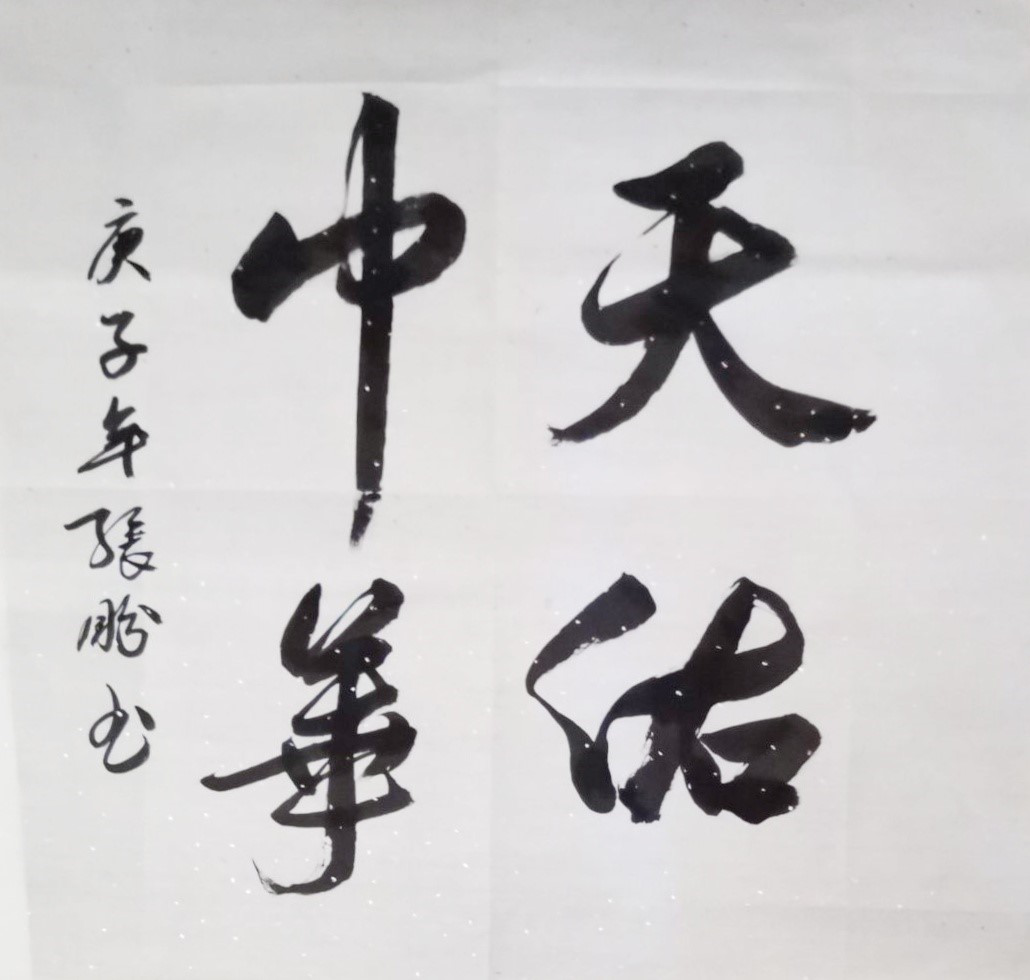 天佑
中華
庚子年張鵬书